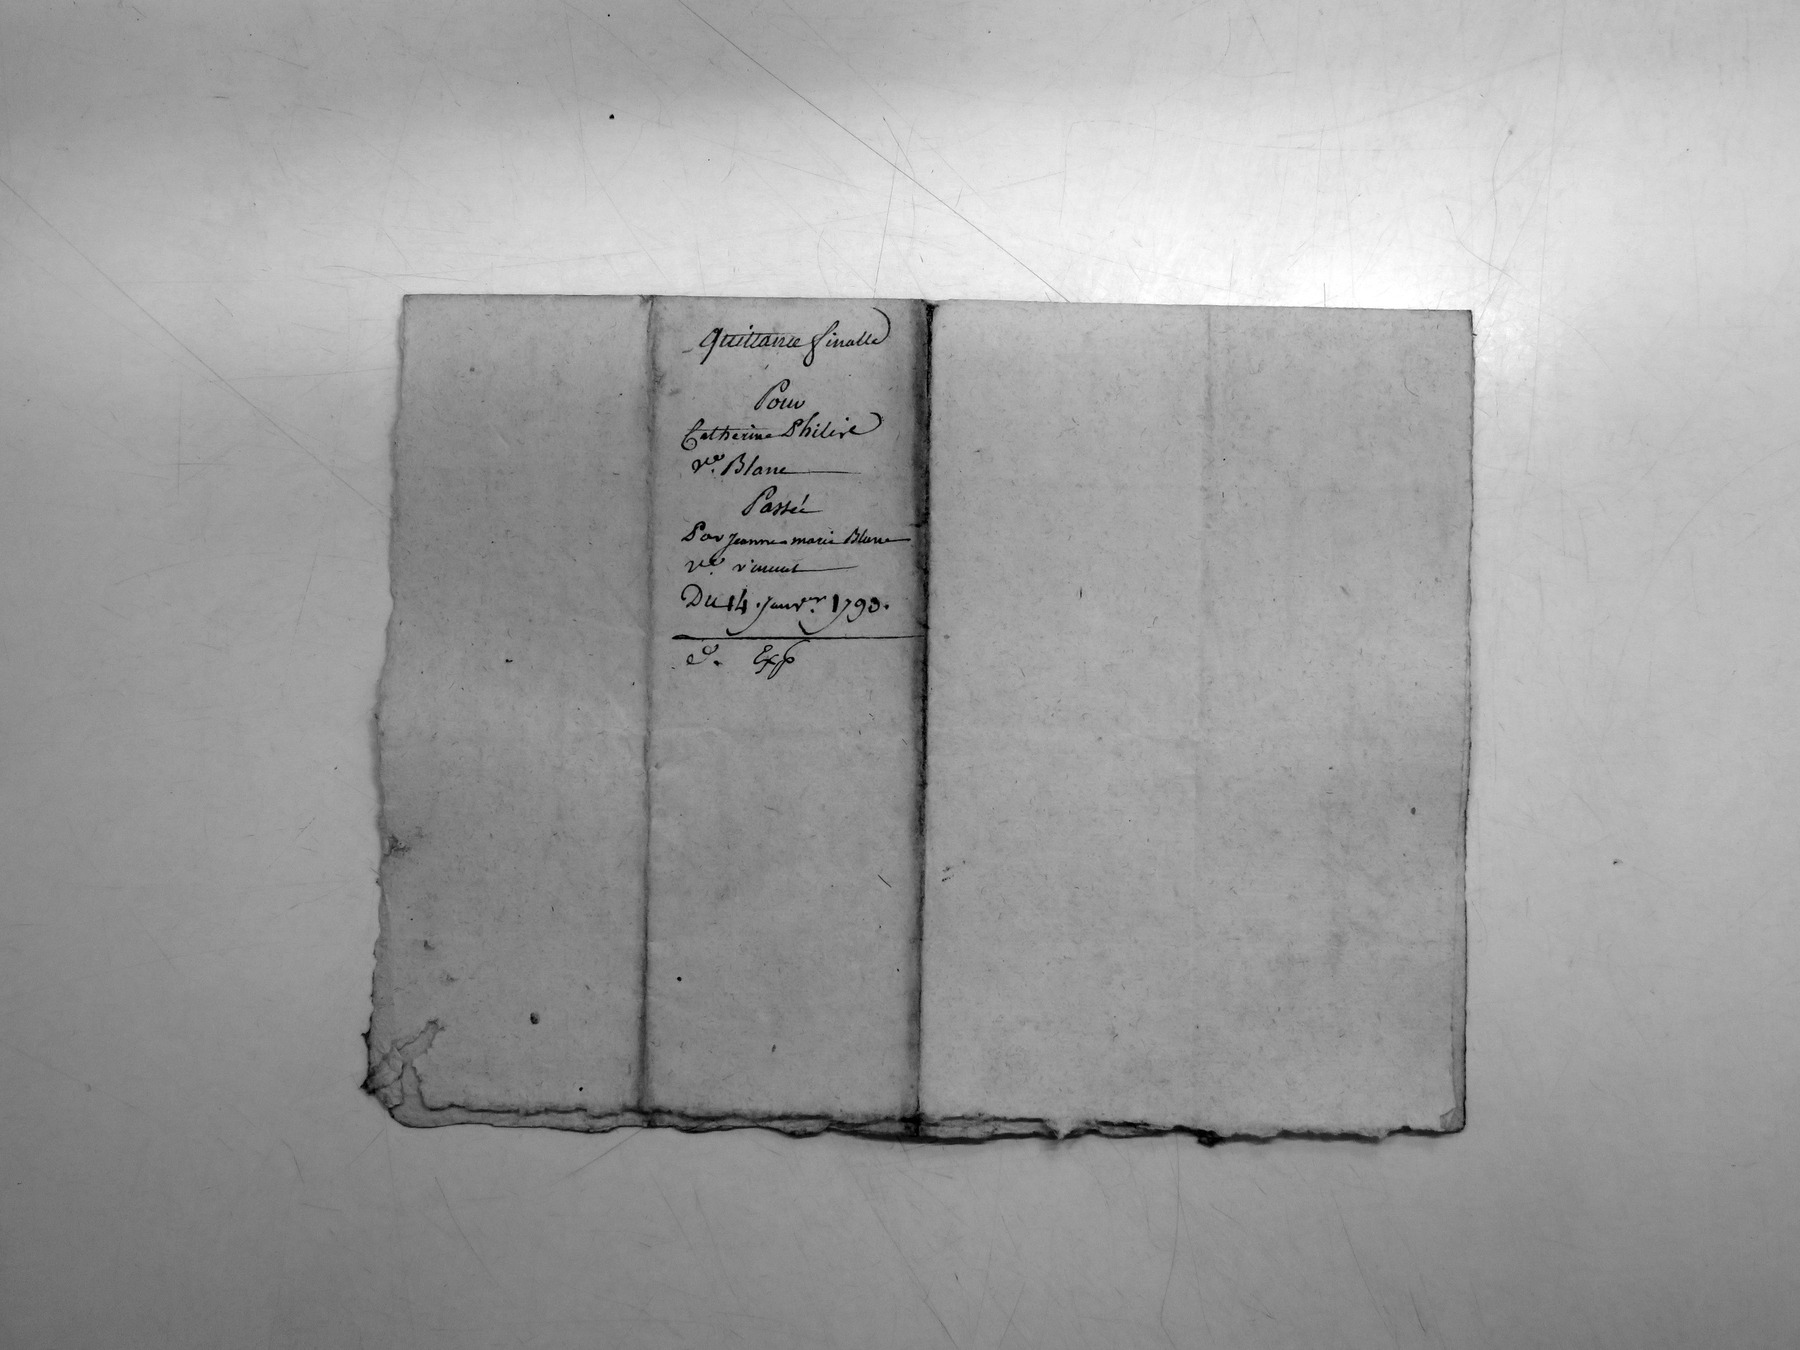 Quittance finalle
Pour
Catherine Philip
v.e Blanc
Passée
Par jeanne marie Blanc
v.e vincent
Du 14. janv.er 1793.
Exp